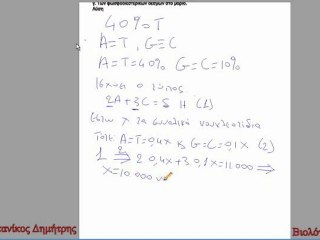 γ. Των φωσφοδιεστερικών δεσμών στο μόριο.
Λύση
40% T
A=T, G≡C
A=T=40% G=C=10%
Ισχύει ο τύπος
2A+3C=δ.Η (1)
Έστω x τα συνολικά νουκλεοτίδια
Τότε A=T=0,4x κ G=C=0,1x (2)
1 ⇒ 2 2 0,4x+3 0,1x=11000 ⇒
x=10 000 νο
τανίκος Δημήτρης
Βιολό